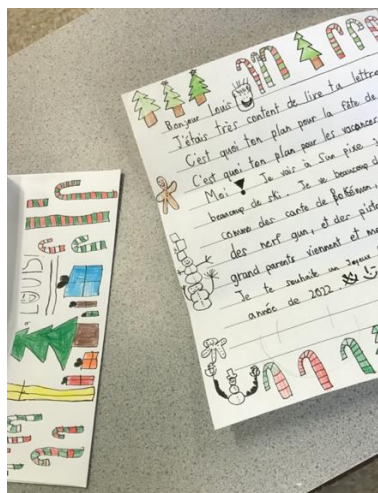 Bonjour Louis
J'étais très content de lire ta lettre
C'est quoi ton plan pour la fête de
C'est quoi ton plan pour les vacances
Moi Je vais à Sun
beaucoup de ski. Je beaucoup
comme des carte de Pokémon,
des nerf gun, et des
grand parents viennent et
Je te souhaite un Joyeux
année de 2022.
LOUIS